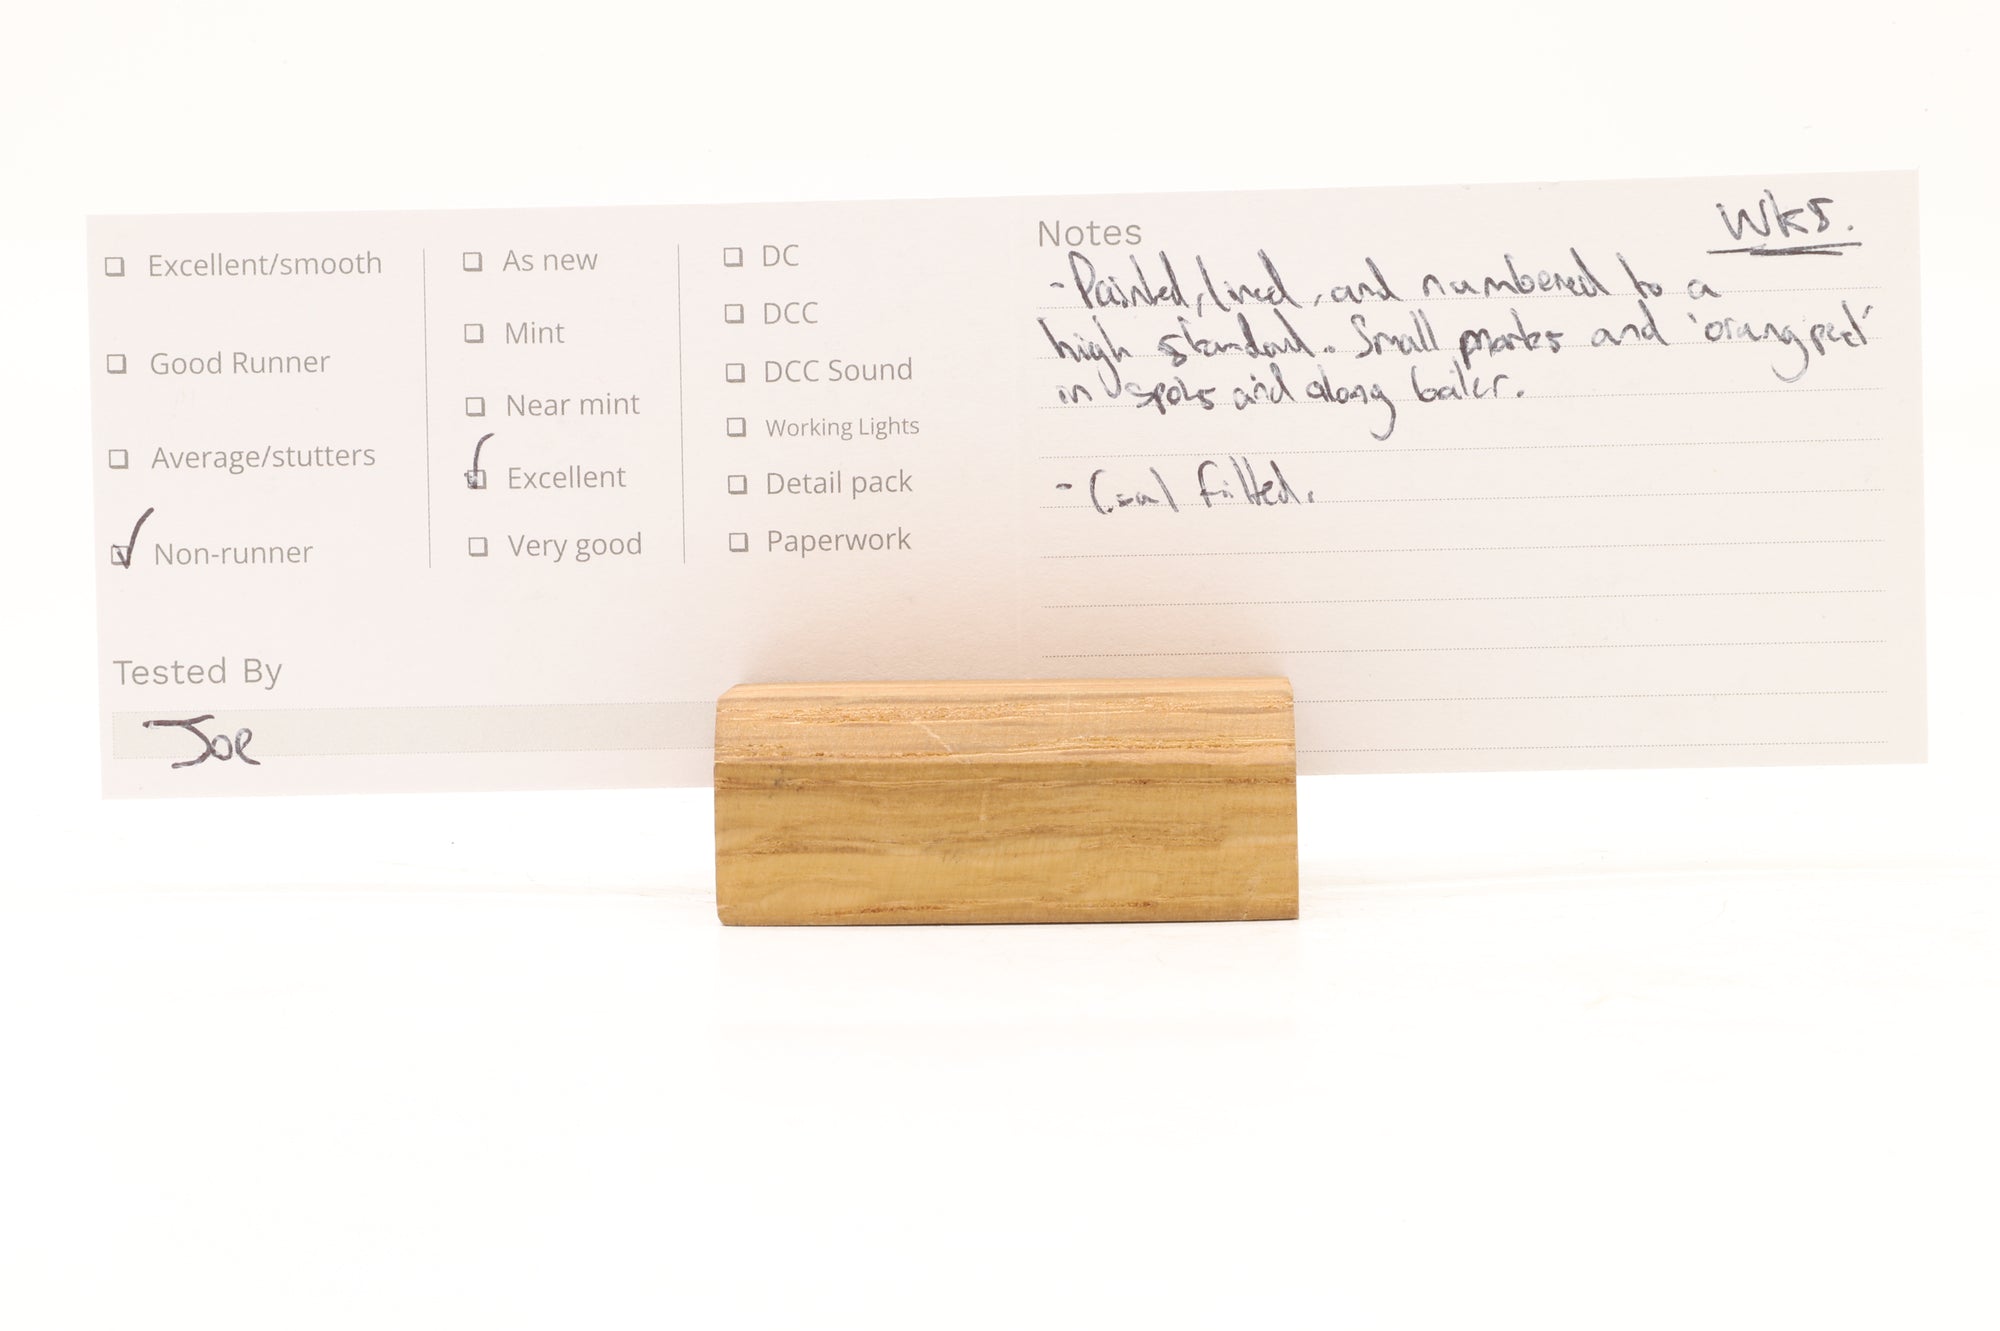 Excellent/smooth
Good Runner
Average/stutters
Non-runner
As new
Mint
Near mint
Excellent
Very good
DC
DCC
DCC Sound
Working Lights
Detail pack
Paperwork
Tested By
Joe
Notes
Wks.
- Painted, lined, and numbered to a
high standard. Small marks and 'orang peel'
in spots and along boiler.
- Coal fitted.